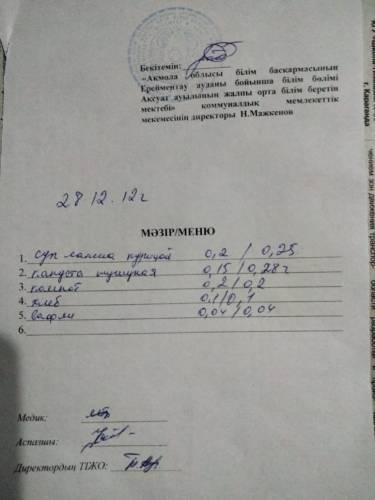 Бекітемін:
«Ақмола облысы білім басқармасының
Ерейментау ауданы бойынша білім бөлімі
Ақсуат ауылының жалпы орта білім беретін
мектебі» коммуналдық мемлекеттік
мекемесінің директоры Н.Мажкенов
28 12. 12г
МӘЗІР/МЕНЮ
1. суп лапша курицой 0,2 / 0,25
2. капуста тушуная 0,15 / 0,28г
3. компот 0,2 / 0,2
4. хлеб 0,1 / 0,1
5. вафли 0,04 / 0,04
6.
Медик:
Аспазшы:
Директордың ТІЖО: